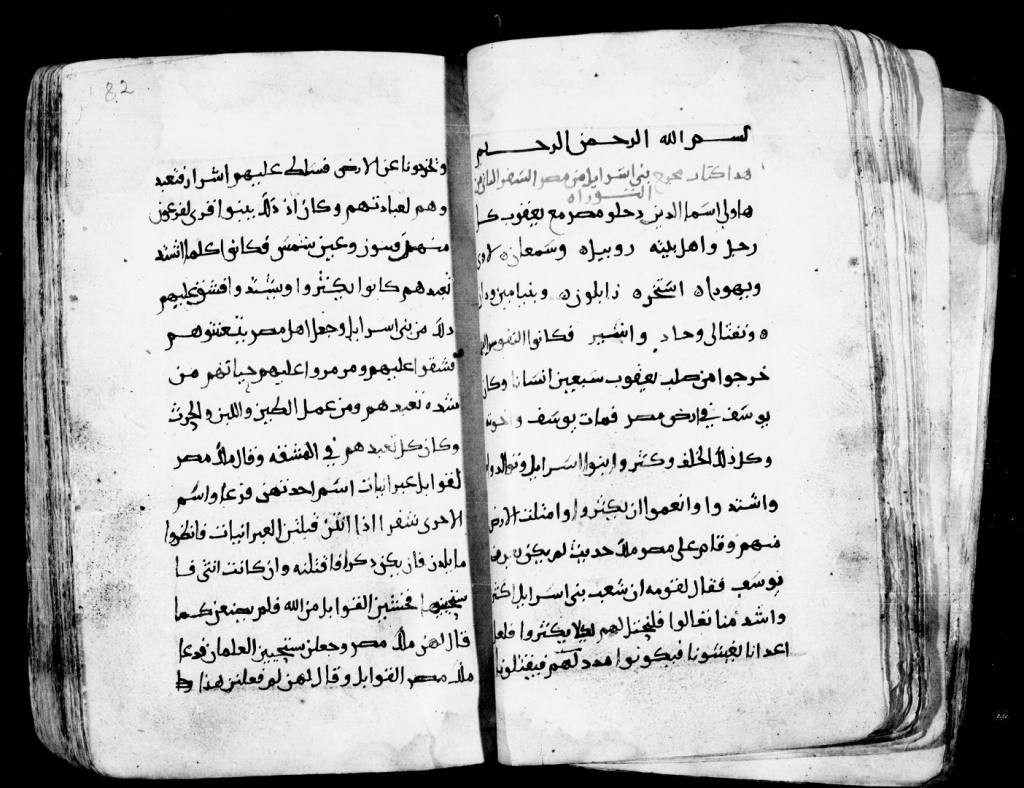 بسم الله الرحمن الرحيم
هدا كتاب مخرج بني اسرايل من مصر السفر الثاني من
التوراه
هاولي اسما الدين دخلو مصر مع يعقوب كل
رجل واهل بيته روبيل ه وسمعان ه لاوي
ويهودا ه استخر ه زابلون ه وبنيامين ودان
ه ونفتالي وحاد واشير فكانوا النفوس
خرجوا من صلب يعقوب سبعين انسانا وكان
يوسف في ارض مصر فمات يوسف واخوته
وكل ذلك الخلف وكثروا بنوا اسرايل وتوالدوا
واشتدوا وانعموا ان يكثروا وامتلت الارض
منهم وقام على مصر ملك حديث لم يكن يعرف
يوسف فقال لقومه ان شعب بني اسرايل اكثر
واشد منا تعالوا فلنحتل لهم ليلا يكثروا فلعل
اعدانا يغشونا فيكونوا مدد لهم فيقتلونا
82
ويخرجونا عن الارض فسلط عليهم اشرار فتعبد
وهم لعبادتهم وكان اذ ذلك بينوا قرى لفرعون
منهم فسوز وعين شمس فكانوا كلما اشتد
تعبدهم كانوا يكثروا ويشتد وافشق عليهم
ذلك من بني اسرايل وجعل اهل مصر يتعنتوهم
فشقوا عليهم ومرمروا عليهم حياتهم من
شده تعبدهم ومن عمل الطين واللبن والحرث
وكان كل تعبدهم في المشقه وقال ملك مصر
لقوابل عبرانيات اسم احدتهن فزعا واسم
الاخرى شفرا اذا انتن قبلتن العبرانيات فانظروا
ما يلدن فان يكن دكرا فاقتلنه وان كانت انثى فا
ستحيينها فخشين القوابل من الله فلم يصنعن كما
قال لهن ملك مصر وجعلن يستحيين الغلمان فدعا
ملك مصر القوابل وقال لهن لم فعلتن هذا